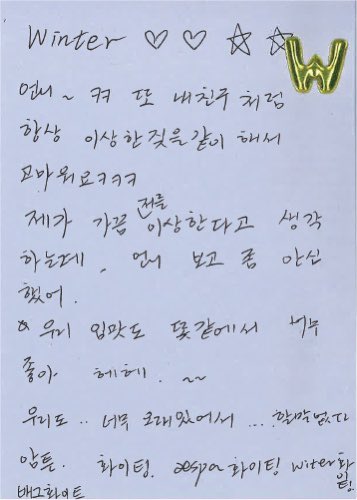 Winter ♡ ♡ ☆ ☆ W
언니~ ㅋㅋ 또 내친구처럼
항상 이상한짓을같이 해서
고마워요ㅋㅋㅋ
제가 가끔 저를 이상한다고 생각
하는데, 언니 보고 좀 안심
했어.
& 우리 입맛도 똑같에서 너무
좋아 헤헤. ~~
우리도.. 너무 오래있어서 .... 할말없다
암튼. 화이팅. aespa 화이팅 Witer 화이팅